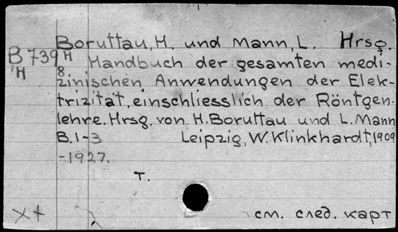 Boruttau, H. und Mann, L. Hrsg.
B 739 H Handbuch der gesamten medi-
'H 8. zinischen Anwendungen der Elek-
trizität, einschliesslich der Röntgen-
lehre. Hrsg. von H. Boruttau und L. Mann
B. 1-3 Leipzig, W. Klinkhardt, 1909
-1927.
T.
см. след. карт